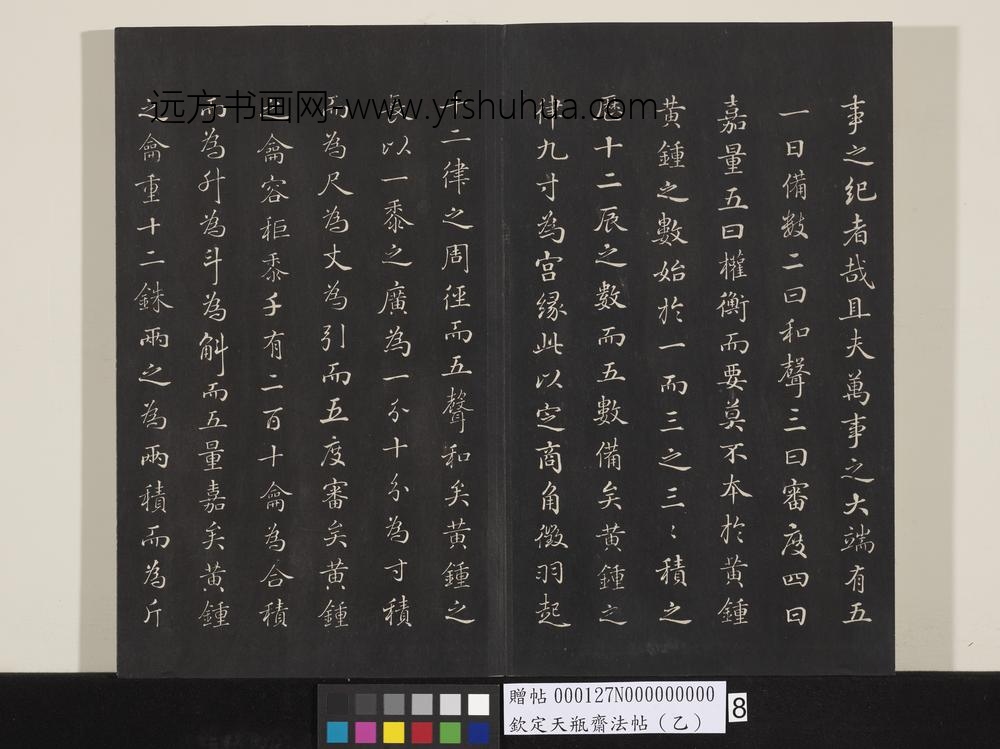 事之紀者哉且夫萬事之大端有五
一曰備數二曰和聲三曰審度四曰
嘉量五曰權衡而要莫不本於黃鍾
黃鍾之數始於一而三之三〻積之
歷十二辰之數而五數備矣黃鍾之
律九寸為宮緣此以定商角徵羽起
十二律之周徑而五聲和矣黃鍾之
長以一黍之廣為一分十分為寸積
而為尺為丈為引而五度審矣黃鍾
之龠容秬黍千有二百十龠為合積
而為升為斗為斛而五量嘉矣黃鍾
之龠重十二銖兩之為兩積而為斤
远方书画网-www.yfshuhua.com
贈帖 000127N000000000
欽定天瓶齋法帖（乙）
8